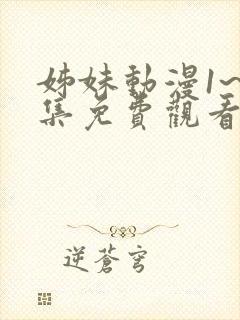 姊妹動漫1~
集免費觀看
逆蒼穹